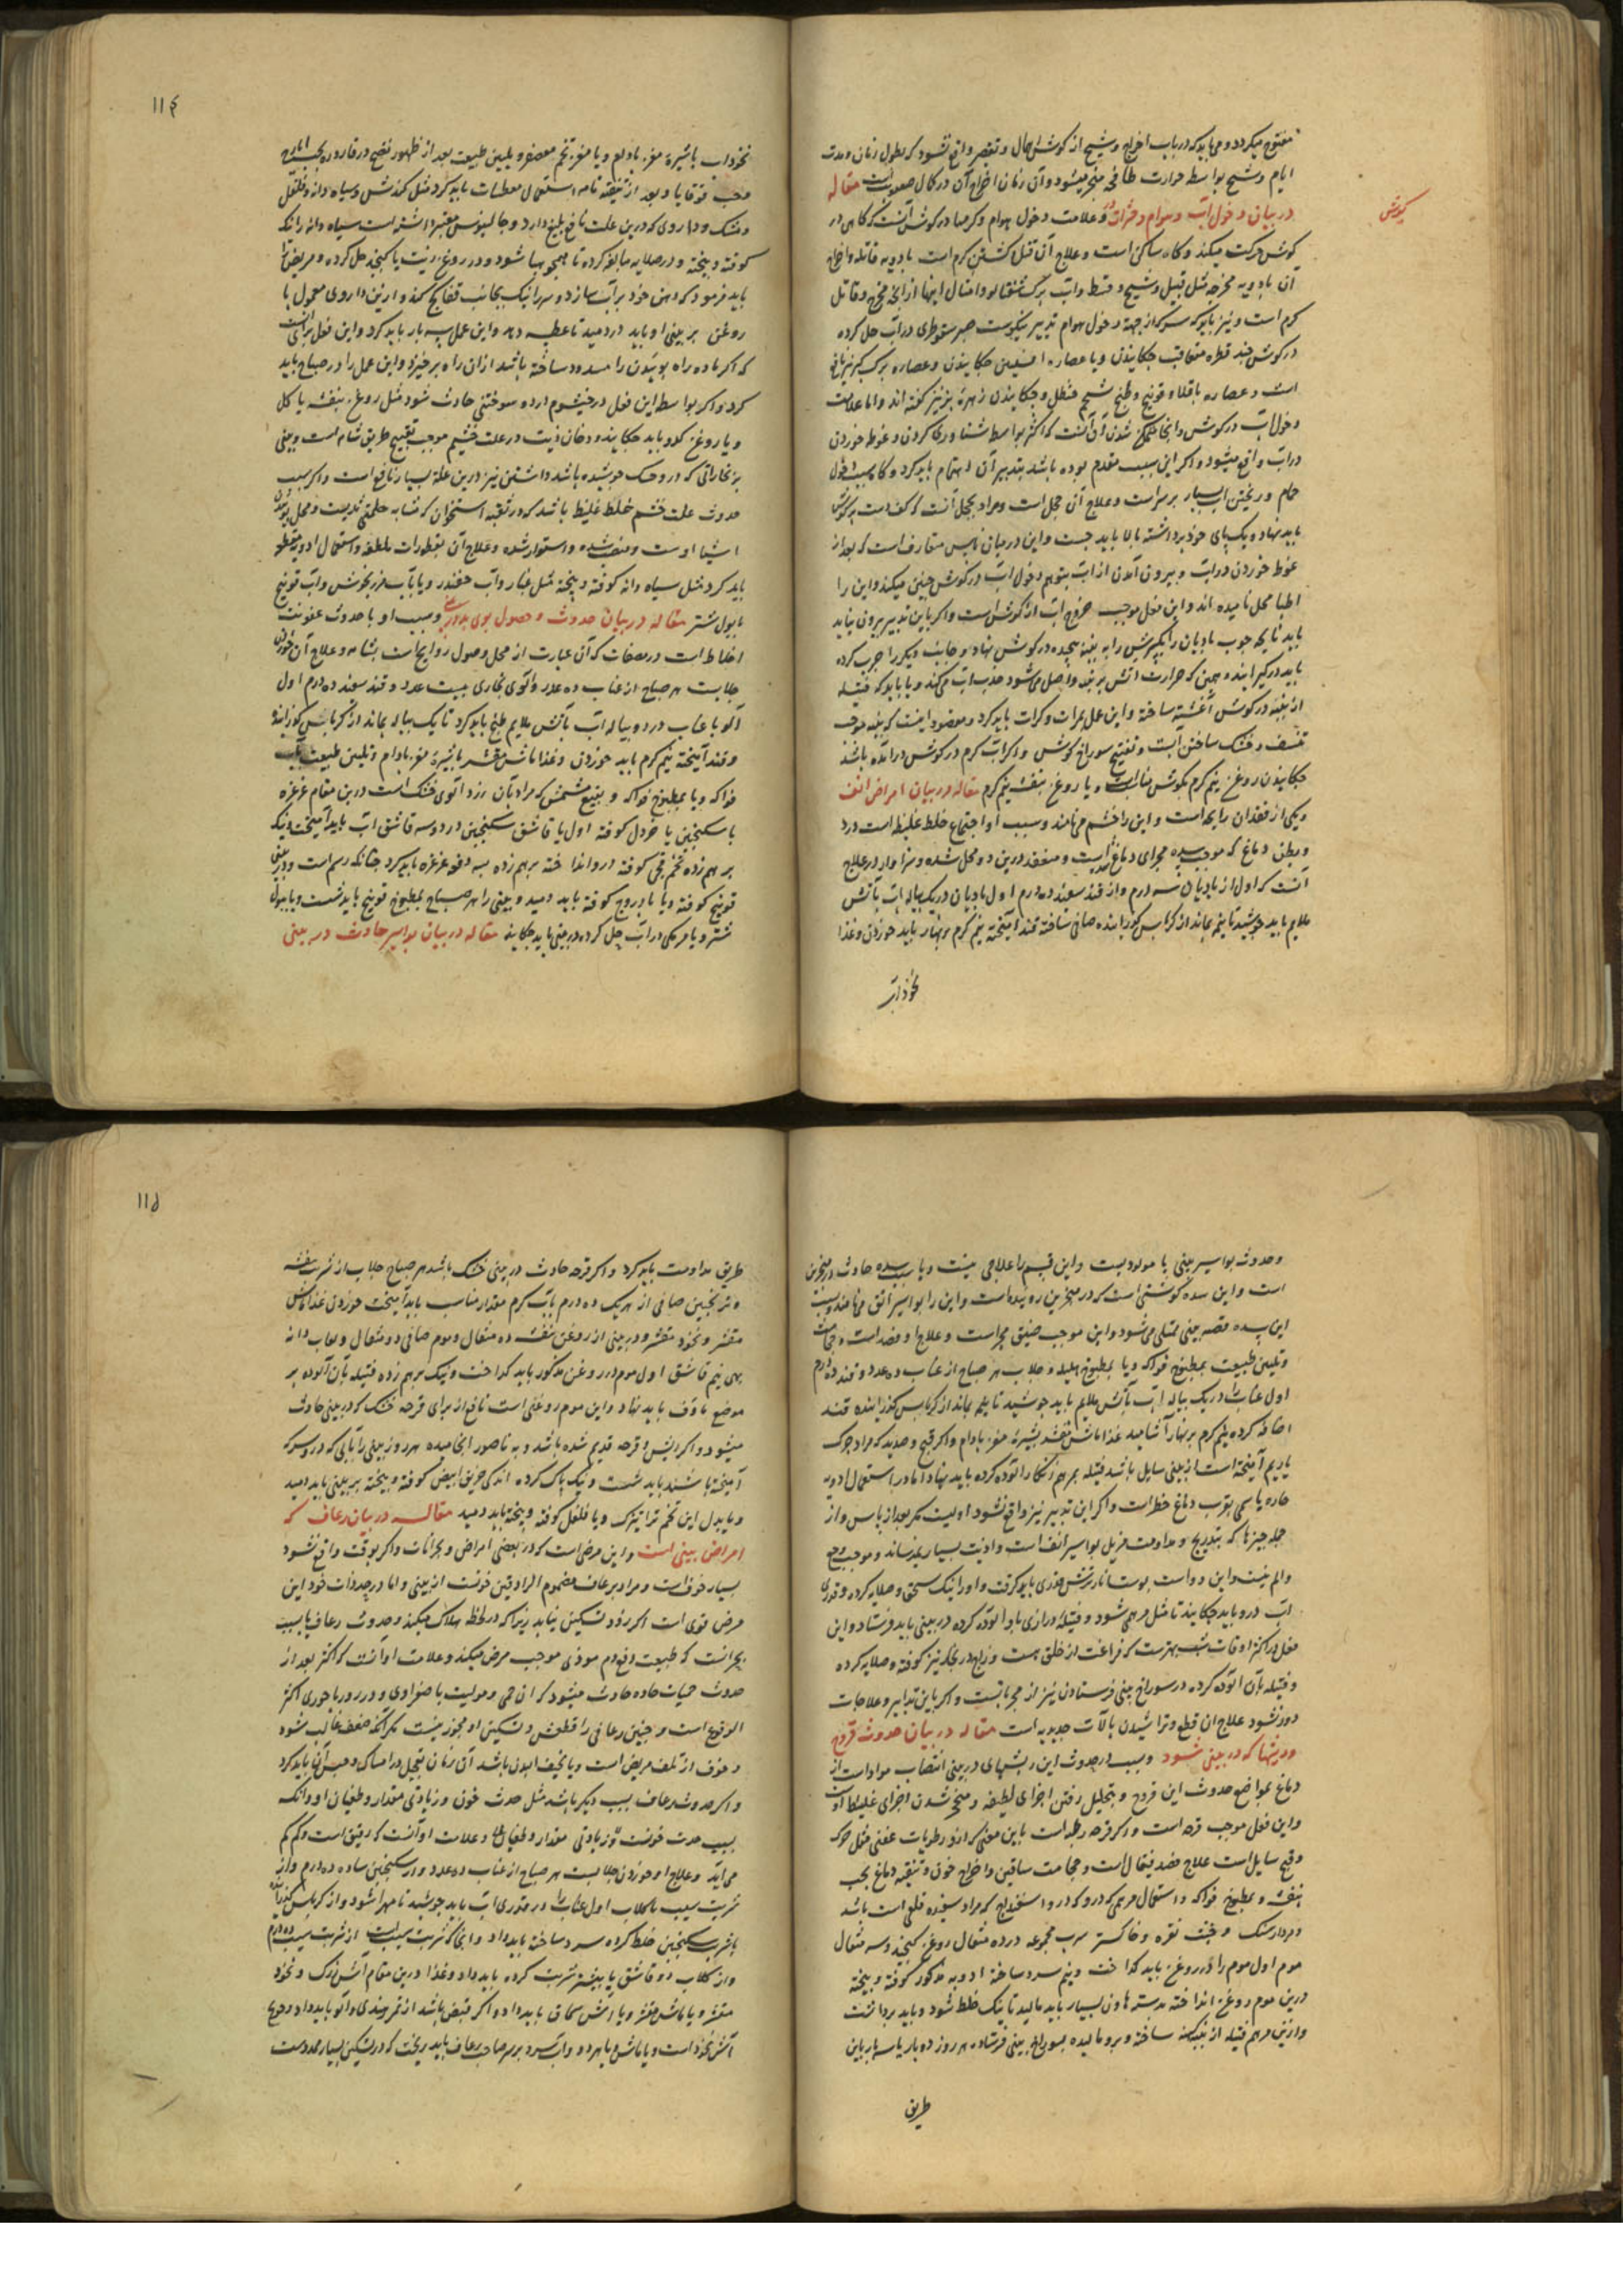 مفتوح میکردد و می باید که در باب اخراج وشیح از کوش اهمال و تقصیر واقع نشود که بطول زمان و مدت
ایام وشیح بواسطه حرارت طافحه منحجر میشود و آن زمان اخراج آن در کمال صعوبت است مقاله
در بیان دخول آب و هوام و حشرات و علامت دخول هوام و کرمها در کوش آنست که کاهی در
بکوش
کوش حرکت میکند و کاه ساکن است و علاج آن قتل و کشتن کرم است بادویه قاتله و اخراج
آن بادویه مخرجه مثل قنبیل و شیح و قسط و آب برک شفتالو و امثال اینها از آنچه مخرج و قاتل
کرم است و نیز باید که سرکه از جهة دخول هوام تدبیر نیکوست صبر سقوطری در آب حل کرده
در کوش چند قطره متعاقب چکانیدن و یا عصاره افسنتین چکانیدن و عصاره برک کبر نیز نافع
است و عصاره باقلا و فوتنج و طبخ شحم حنظل و چکانیدن زهره بز نیز کفته اند و اما علامت
دخول آب در کوش و آنجا متمکن شدن آن آنست که اکثر بواسطه شنا وری کردن و غوطه خوردن
در آب واقع میشود و اکر این سبب مقدم بوده باشد بتدبیر آن اهتمام باید کرد و کاه بسبب دخول
حمام و ریختن آب بسیار بر سر است و علاج آن حجل است و مراد بحجل آنست که کف دست بر کوش
باید نهاد و یک پای خود برداشته بالا باید جست و این در میان ناس متعارف است که بعد از
غوطه خوردن در آب و بیرون آمدن از آب بتوهم دخول آب در کوش چنین میکنند و این را
اطبا حجل نامیده اند و این فعل موجب خروج آب از کوش است و اکر باین تدبیر بیرون نیاید
باید تا یک چوب بادیان را یک سرش را به پنبه پیچیده در کوش نهاد و جانب دیکر را چرب کرده
باید در کیرانند و همین که حرارت آتش بر پنبه واصل می شود جذب آب می کند و یا باید که فتیله
از پنبه در کوش آغشته ساخته و این عمل بمرات و کرات باید کرد و مقصود اینست که پنبه موجب
نشف و خشک ساختن آبست و تفتیح سوراخ کوش و اکر آب کرم در کوش درآمده باشد
چکانیدن روغن نیم کرم بکوش مناسب است و یا روغن بنفشه نیم کرم مقاله در بیان امراض انف
و یکی از فقدان رایحه است و این را خشم می نامند و سبب او اجتماع خلط غلیظ است در دو
و بطن دماغ که موجب سده مجرای دماغ است و منعقد درین دو محل شده و سزاوار در علاج
آنست که اول از بادیان سه درم و از قند سفید ده درم اول بادیان در یک پیاله آب بآتش
ملایم باید جوشید تا نیم بماند از کرباس کذرانده صافی ساخته قند آمیخته نیم کرم بر نهار باید خوردن و غذا
نخود آب
۱۱۴
نخود آب باشیره مغز بادام و یا مغز تخم معصفر و تلیین طبیعت بعد از ظهور نضج در قاروره بحب ایارج
و حب قوقایا و بعد از تنقیه تامه استعمال معطسات باید کرد مثل کندش و سیاه دانه و فلفل
و مشک و داروی که درین علت نافع بلیغ دارد و جالینوس معتبر داشته است سیاه دانه را نیک
کوفته و بیخته و در صلایه مبالغه کرده تا همچو هبا شود و در روغن زیت یا کنجد حل کرده و مریض را
باید فرمود که دهن خود پر آب سازد و سر را نیک بجانب قفا کج کند و از ین داروی معمول با
روغن بر بینی او باید در دمید تا عطسه دهد و این عمل سه بار باید کرد و این فعل برای آنست
که اکر ماده راه بوئیدن را مسدود ساخته باشد از ان راه بر خیزد و این عمل را در صباح باید
کرد و اکر بواسطه این فعل در خیشوم درد و سوختنی حادث شود مثل روغن بنفشه یا کل
و یا روغن کدو باید چکانید و دخان زیت در علت خشم موجب تفتیح طریق شامه است و بینی
بر بخاراتی که در و حسک جوشیده باشد داشتن نیز درین علة بسیار نافع است و اکر سبب
حدوث علت خشم خلط غلیظ باشد که در ثقبه استخوان که مشابه حلمتی ثدیست و محل بوئیدن
اشیا اوست و منصب شده و استوار شده و علاج آن بقطورات ملطفه و استعمال ادویه مقطعه
باید کرد مثل سیاه دانه کوفته و بیخته مثل غبار و آب چغندر و یا بآب مرزنجوش و آب فوتنج
با بول شتر مقاله در بیان حدوث و حصول بوی بد در بینی و سبب او یا حدوث عفونت
اخلاط است در مصفات که آن عبارت از محل وصول روایح است بشامه و علاج آن خوردن
جلابست هر صباح از عناب ده عدد و آلوی بخاری بیست عدد و قند سفید ده درم اول
آلو با عناب در دو پیاله آب بآتش ملایم طبخ باید کرد تا یک پیاله بماند از کرباس کذرانده
و قند آمیخته نیم کرم باید خوردن و غذا ماش مقشر باشیره مغز بادام و تلیین طبیعت بآب
فواکه و یا بمطبوخ فواکه و بنقیع مشمش که مراد بآن زرد آلوی خشک است درین مقام غرغره
با سکنجبین یا خردل کوفته اول یا قاشق سکنجبین در دو سه قاشق آب باید آمیخت و نیک
بر هم زده تخم قجی کوفته در و انداخته بر هم زده سه دفعه غرغره باید کرد چنانکه رسم است و در بینی
فوتنج کوفته و یا بادروج کوفته باید دمید و بینی را هر صباح بمطبوخ فوتنج باید شست و یا ببول
شتر و یا مر مکی در آب حل کرده در بینی باید چکانید مقاله در بیان بواسیر حادث در بینی
وحدوث بواسیر بینی یا مولودیست و این قسم را علاجی نیست و یا بسبب سده حادث در منخرین
است و این سده کوشتی است که در منخرین روییده است و این را بواسیر انف می نامند و بسبب
این سده قصبه بینی ممتلی می شود و این موجب ضیق مجراست و علاج او فصد است و حجامت
و تلیین طبیعت بمطبوخ فواکه و یا بمطبوخ هلیله و جلاب هر صباح از عناب ده عدد و قند ده درم
اول عناب را در یک پیاله آب بآتش ملایم باید جوشید تا نیم بماند از کرباس کذرانیده قند
اضافه کرده نیم کرم بر نهار آشامید غذا ماش مقشر بشیره مغز بادام و اکر قیح و صدید که مراد چرک
یا ریم آمیخته است از بینی سایل باشد فتیله بمرهم زنکار آلوده کرده باید نهاد اما در استعمال ادویه
حاره یا سمی بقرب دماغ خطر است و اکر این تدبیر نیز واقع نشود اولیست مکر بعد از یاس و از
جمله چیزها که بتدریج و مداومت مزیل بواسیر انف است و اذیت بسیار نمیرساند و موجب وجع
و الم نیست و این دواست پوست انار ترش قدری باید کرفت و او را نیک سحق و صلایه کرده و قدری
آب درو باید چکانید تا مثل مرهمی شود و فتیله درازی باو آلوده کرده در بینی باید فرستاد و این
فعل در اکثر اوقات شب بهترست که فراغت از خلق هست و زاج در بکر نیز کوفته و صلایه کرده
و فتیله بآن آلوده کرده در سوراخ بینی فرستادن نیز از مجرباتست و اکر باین تدابیر و علاجات
دور نشود علاج ان قطع و تراشیدن بآلات حدیدیه است مقاله در بیان حدوث قروح
و ریشها که در بینی شود و سبب در حدوث این ریشهای در بینی انصباب مواد است از
دماغ بمواضع حدوث این قروح و بتحلیل رفتن اجزای لطیفه و منحجر شدن اجزای غلیظه آن
و این فعل موجب قرحه است و اکر قرحه رطبه است باین معنی که ازو رطوبات عفنی مثل چرک
و قیح سایل است علاج فصد قیفال است و حجامت ساقین و اخراج خون و تنقیه دماغ بحب
بنفشه و بمطبوخ فواکه و استعمال مرهمی که در و کندر و اسفیداج که مراد سفیده قلعی است باشد
و مردارسنک و خبث نقره و خاکستر سرب مجموعه در ده مثقال روغن کنجید و سه مثقال
موم اول موم را در روغن باید کداخت و نیم سرد ساخته ادویه مذکور کوفته و بیخته
درین موم روغن انداخته بدسته هاون بسیار باید مالید تا نیک خلط شود و باید برداشت
و ازین مرهم فتیله از پنبه کهنه ساخته و برو مالیده بسوراخ بینی فرستاده هر روز دو بار یا سه بار باین
طریق
۱۱۵
طریق مداومت باید کرد و اکر قرحه حادث در بینی خشک باشد هر صباح جلاب از شربت بنفشه
و ترنجبین صافی از هر یک ده درم بآب کرم مقدار مناسب باید آمیخت خوردن غذا ماش
مقشر و نخود مقشر و در بینی از روغن بنفشه ده مثقال و موم صافی دو مثقال و لعاب دانه
بهی نیم قاشق اول موم در روغن مذکور باید کداخت و نیک بر هم زده فتیله بآن آلوده بر
موضع ماؤف باید نهاد و این موم روغنی است نافع از برای قرحه خشک که در بینی حادث
میشود و اکر ریش و قرحه قدیم شده باشد و به ناصور انجامیده هر روز بینی را بآبی که در و سرکه
آمیخته باشند باید شست و نیک پاک کرده اندکی خربق ابیض کوفته و بیخته بر بینی باید دمید
و یا بدل این تخم ترا تیزک و یا فلفل کوفته و بیخته باید دمید مقاله در بیان رعاف که
امراض بینی است و این مرض است که در بعضی امراض و بحرانات و اکر بوقت واقع نشود
بسیار خوف است و مراد برعاف مضموم الراد قین خونست از بینی و اما در حد ذات خود این
مرض قوی است اکر زود تسکین نیاید زیرا که در لحظه هلاک میکند و حدوث رعاف یا بسبب
بحرانست که طبیعت دفع دم موذی موجب مرض میکند و علامت او آنست که اکثر بعد از
حدوث حمیات حاده حادث میشود که آن حمی دمویست یا صفراوی و در روز باحوری اکثر
الوقوع است و چنین رعافی را قطعش و تسکین او مجوز نیست مکر آنکه ضعف غالب شود
و خوف از تلف مریض است و یا نحیف البدن باشد آن زمان بتعجیل در امساک و حبس آن باید کرد
و اکر حدوث رعاف بسبب دیکر باشد مثل حدت خون و زیادتی مقدار و طغیان او و آنکه
بسبب حدت خونست و زیادتی مقدار و طغیان او و علامت او آنست که رقیق است و کم کم
می آید و علاج او خوردن جلابست هر صباح از عناب ده عدد و از سکنجبین ساده ده درم و از
شربت سیب باکلاب اول عناب را در قدری آب باید جوشید تا مهرا شود و از کرباس کذرانده
باشربت سکنجبین خلط کرده سرد ساخته باید داد و آنجا که شربت سیب است از شربت سیب ده درم
و از کلاب دو قاشق یا بیشتر شربت کرده باید داد و غذا درین مقام آش زرک و نخود
مقشر و یا ماش مقشر و یا آش سماق باید داد و اکر قبض باشد از تمر هندی و آلو باید داد و حوایج
آتش نخود است و یا ماش و یا هر دو و آب سرد بر سر صاحب رعاف باید ریخت که در تسکین بسیار ممدوست